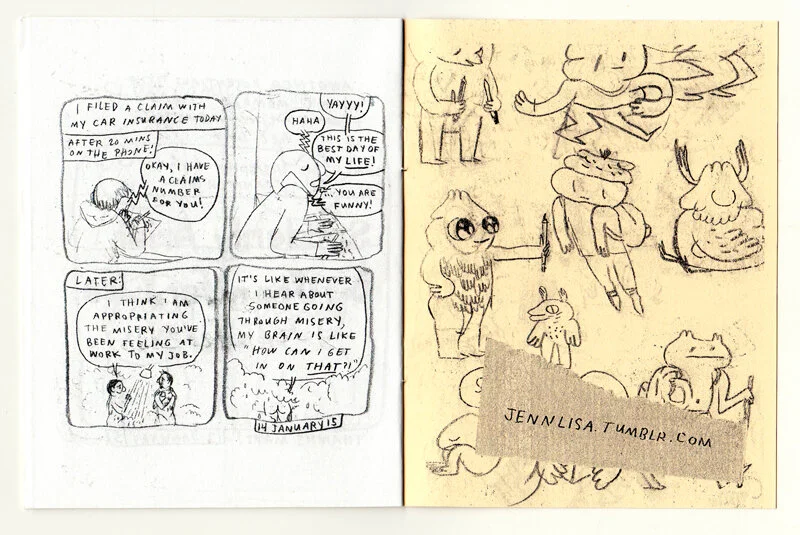 I FILED A CLAIM WITH
MY CAR INSURANCE TODAY
AFTER 20 MINS
ON THE PHONE!
OKAY, I HAVE
A CLAIMS
NUMBER
FOR YOU!
YAYYY!
HAHA
THIS IS THE
BEST DAY OF
MY LIFE!
...YOU ARE
FUNNY!
LATER:
I THINK I AM
APPROPRIATING
THE MISERY YOU'VE
BEEN FEELING AT
WORK TO MY JOB.
IT'S LIKE WHENEVER
I HEAR ABOUT
SOMEONE GOING
THROUGH MISERY,
MY BRAIN IS LIKE
"HOW CAN I GET
IN ON THAT?!"
14 JANUARY 15
JENNLISA.TUMBLR.COM